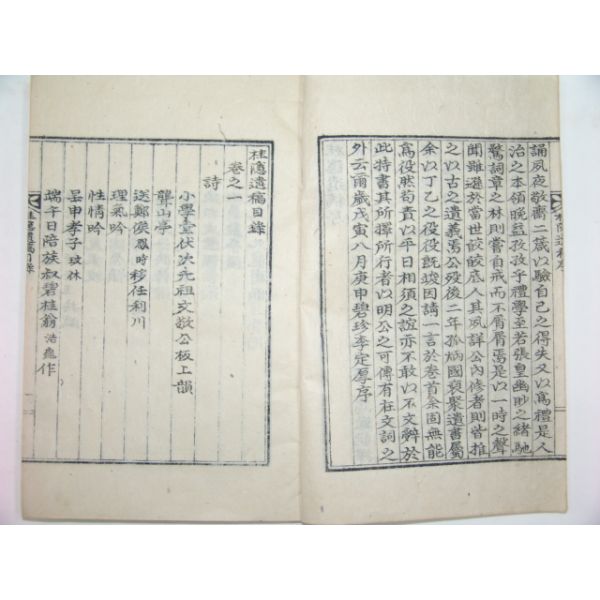 誦夙夜敬齋二箴以驗自己之得失又以爲禮是人
治之本領晩益孜孜乎禮學至若張皇幽眇之緖馳
騖詞章之林則嘗自戒而不屑屑焉是以一時之聲
聞雖遜於當世皎皎底人其夙詳公內修者則皆推
之以古之遺義焉公歿後二年孫炳國裒聚遺書屬
余以丁乙之役役旣竣因請一言於卷首余固無能
爲役然苟責以平日相須之誼亦不敢以不文辭於
此特書其所擇所行者以明公之可傳有在文詞之
外云爾歲戊寅八月庚申碧珍李定厚序
桂隱遺稿目錄
卷之一
詩
小學臺伏次元祖文敬公板上韻
聾山亭
送鄭渓鳳時移任利川
理氣吟
性情吟
呈申孝子玻林
端午日陪族叔碧桂翁浩㐫作